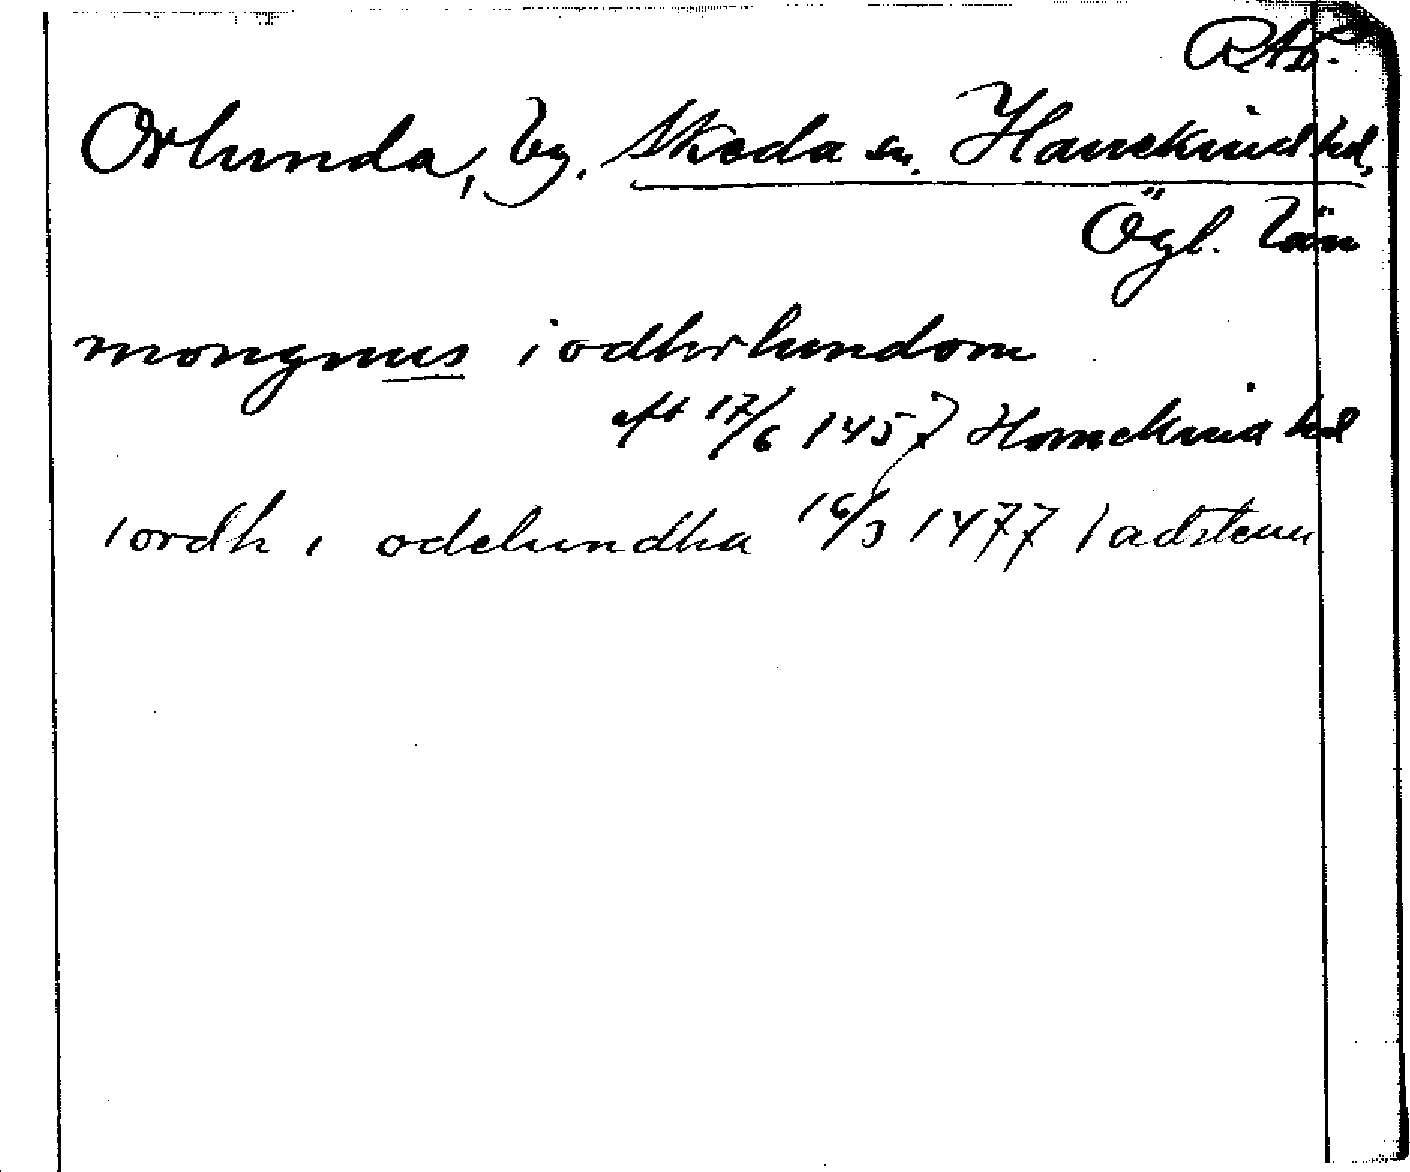 RAP.
Orlunda, by. Skeda sn. Hanekind hd,
Ögl. län
mongnus i odhrlundom
eft 17/6 1457 Hanekind hd
iordh i odelundha 16/3 1477 Vadstena